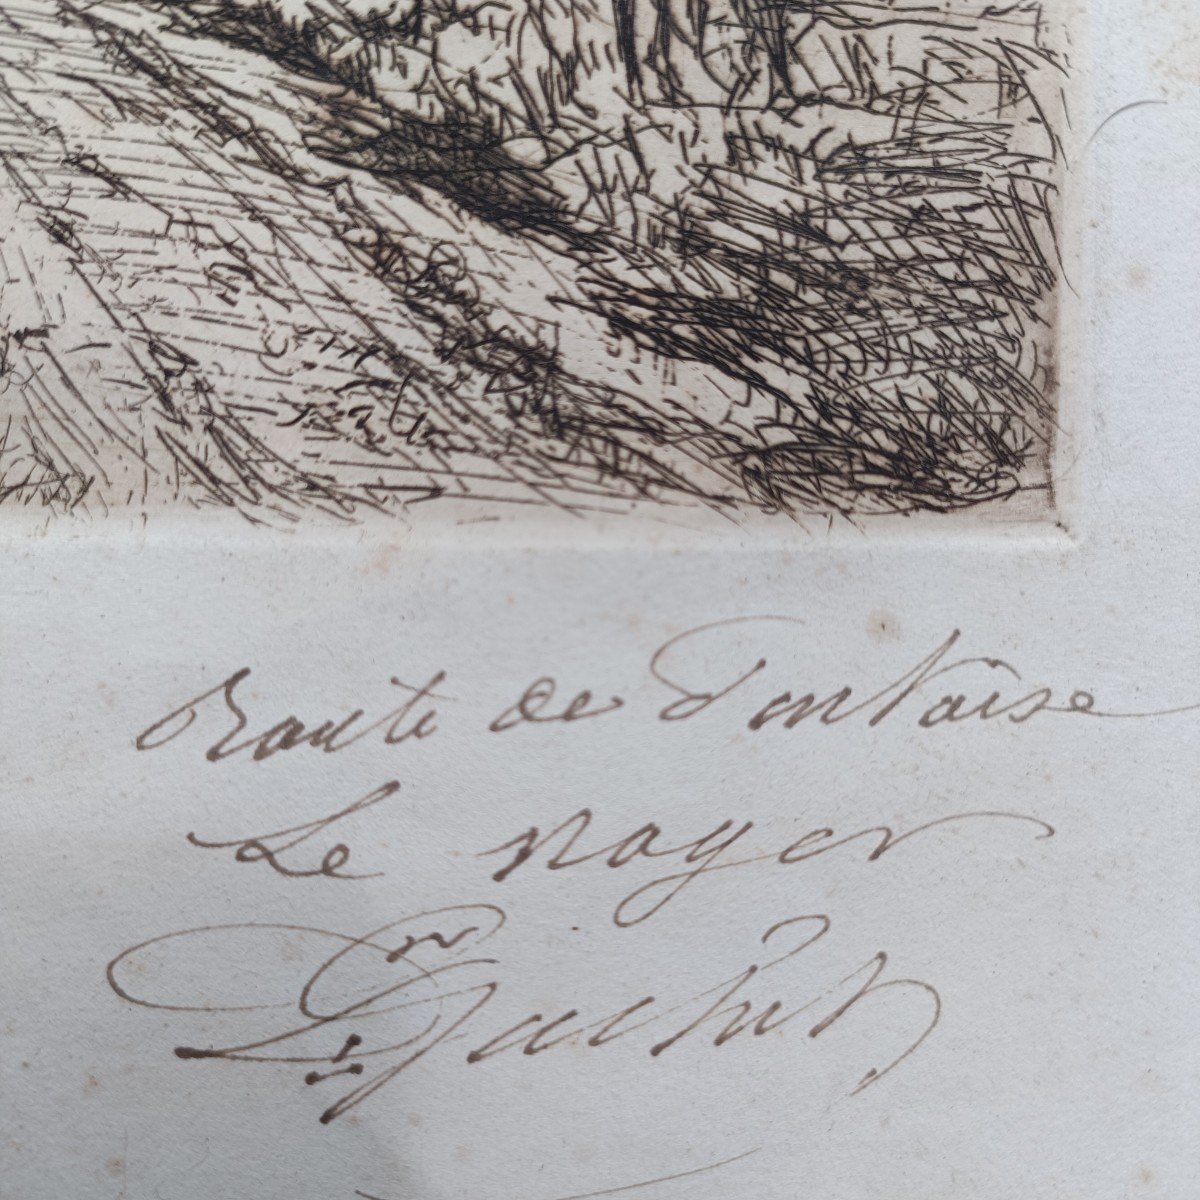 Route de Pontoise
Le noyer
Dr Gachet